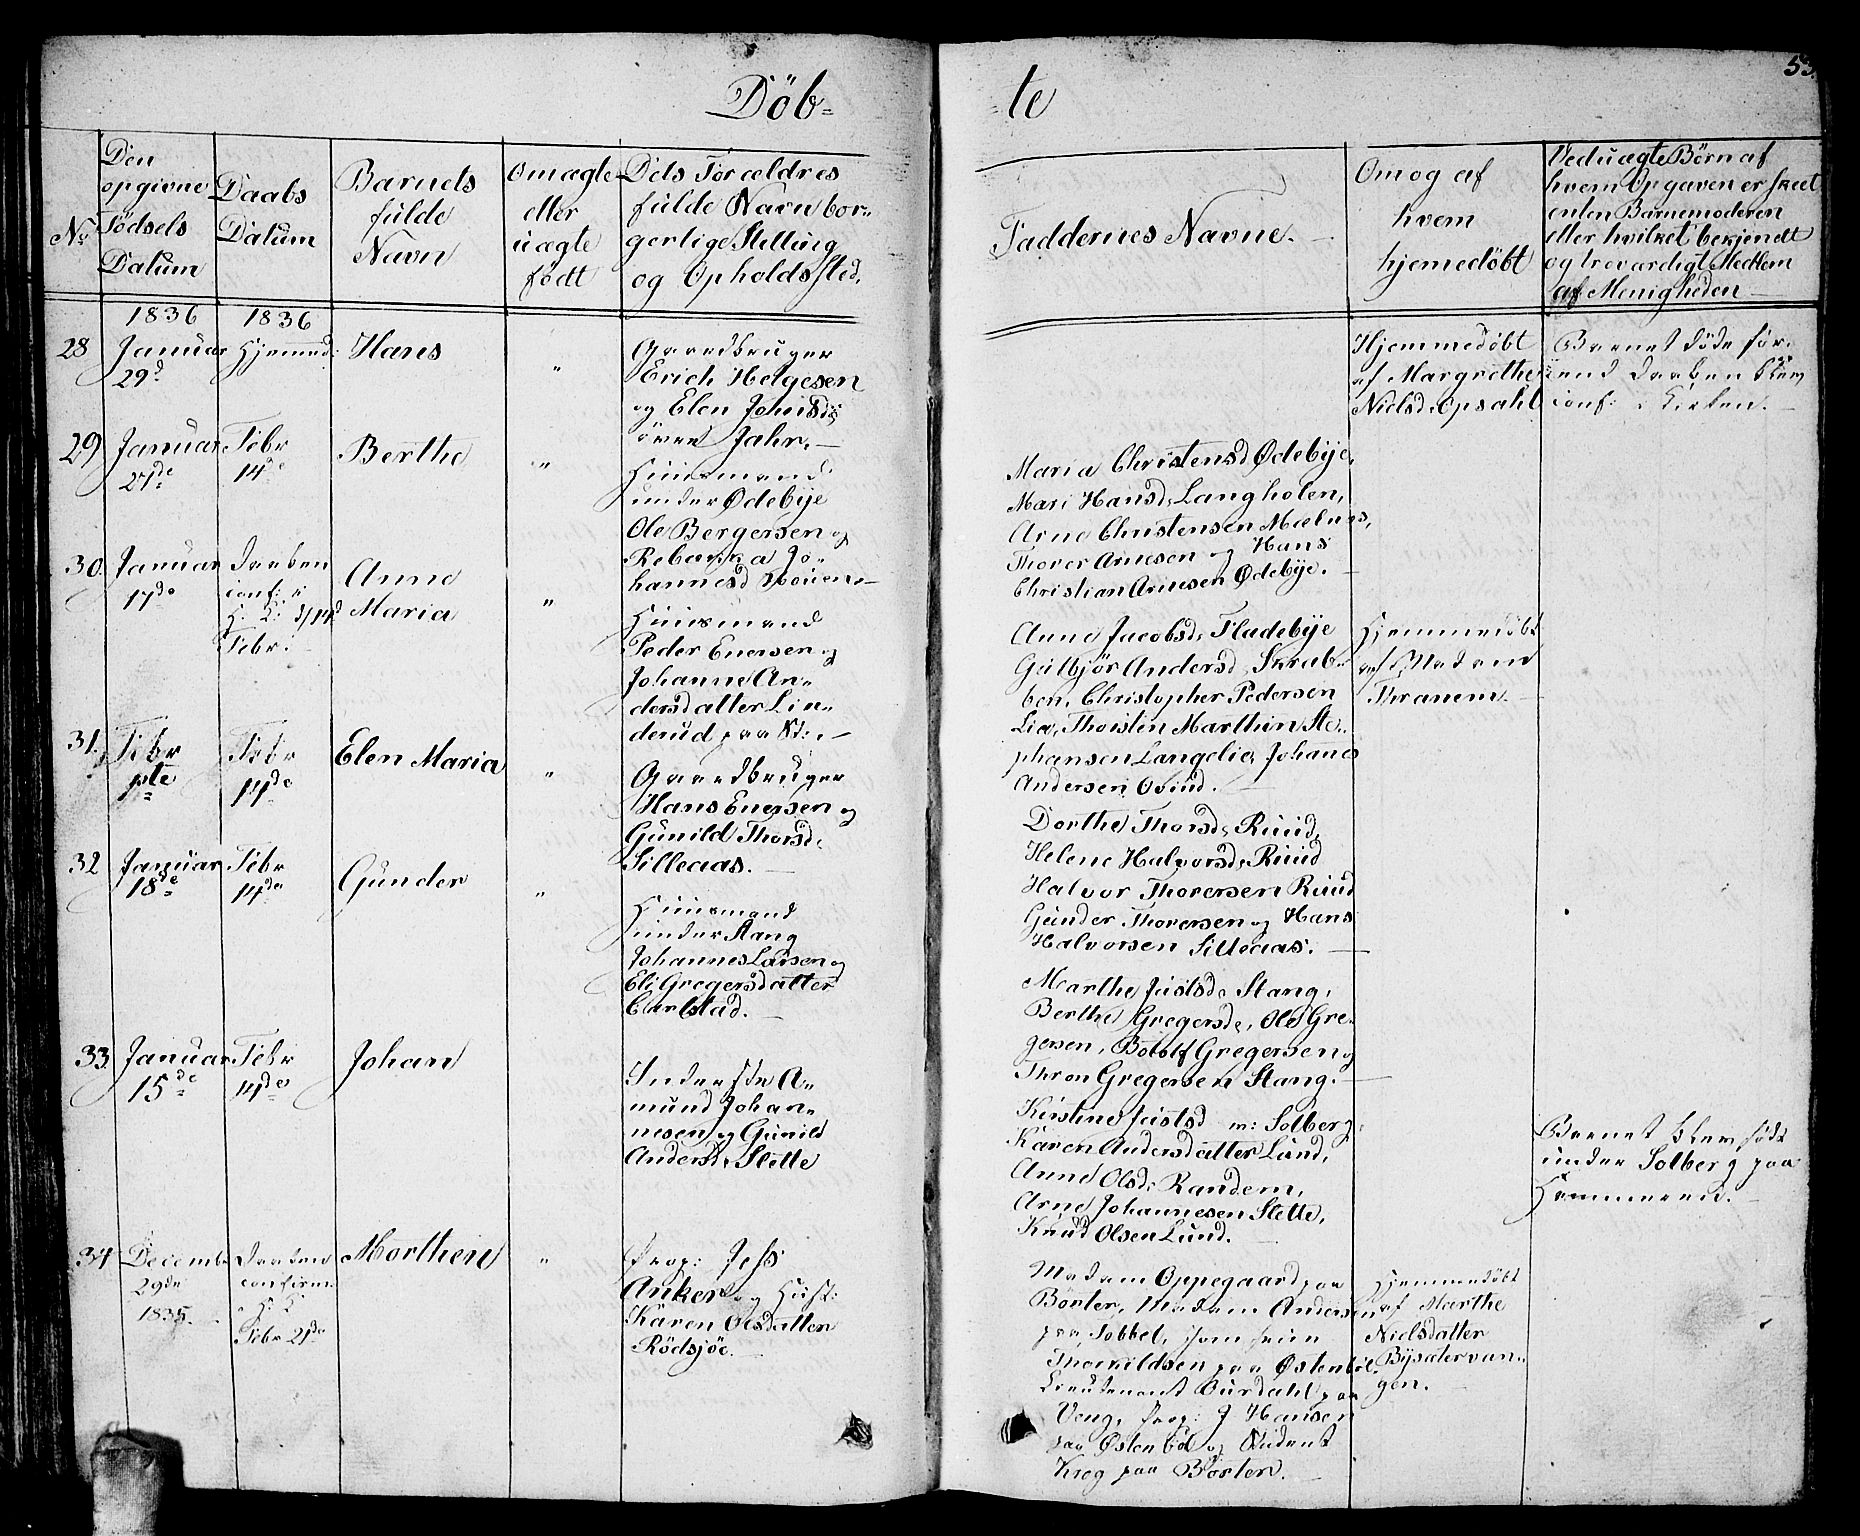 Döb=
=te
53.
No
Den
opgivne
Födsels
Datum
Daabs
Datum
Barnets
fulde
Navn
Om ægte
eller
uægte
födt
Dets Forældres
fulde Navn bor=
gerlige Stilling
og Opholdssted.
Faddernes Navne.
Om og af
hvem
hjemedöbt
Ved uægte Börn af
hvem Opgaven er skeet
enten Barnemoderen
eller hvilket bekjendt
og troværdigt Medlem
af Menigheden
1836
1836
28
Januar
29d
Hjemmed:
Hans
"
Gaardbruger
Erich Helgesen
og Elen Johnsd:
övre Jahr.
Hjemmedöbt
af Margrethe
Nielsd: Opsahl
Barnet döde för=
end Daaben blev
conf: i Kirken.
29
Januar
27de
Febr
14de
Berthe
"
Huusmand
under Ödebye
Ole Bergersen og
Rebækka Jo=
hannesd Mouen
Maria Christensd Ödebye,
Mari Hansd: Langholen,
Arne Christensen Mælnes,
Thorer Arnesen og Hans
Christian Arnesen Ödebye.
30.
Januar
17de
Daaben
conf: i
H. K: d/14d
Febr.
Anne
Maria
"
Huusmand
Peder Enersen og
Johanne An=
dersdatter Lin=
derud paa St:
Anne Jacobsd: Fladebye
Gulbjör Andersd: Skrab=
ben, Christopher Pedersen
Lia, Thorstin Marthin Ste=
phansen Langelie, Johanes
Andersen Ovind.
Hjemmedöbt
af Madam
Thranem.
31.
Febr
1te
Febr
14de
Elen Maria
"
Gaardbruger
Hans Enersen og
Gunild Thorsd:
Silleaas.
Dorthe Thorsd: Ruud,
Helene Halvorsd: Ruud
Halvor Thorersen Ruud
Gunder Thorersen og Hans
Halvorsen Silleaas.
32
Januar
18de
Febr
14de
Gunder
"
Huusmand
under Stang
Johannes Larsen og
Eli Gregersdatter
Carlstad.
Marthe Justsd: Stang,
Berthe Gregersd:, Ole Gre=
gersen, Botolf Gregersen og
Thron Gregersen Stang.
33.
Januar
15de
Febr
14de
Johan
Inderste A=
mund Johan=
nesen og Gunild
Andersd: Slette
Kirstine Justsd m: Solberg,
Karen Andersdatter Lund,
Anne Olsd: Randem,
Arne Johannesen Slette,
Knud Olsen Lund.
Barnet blev födt
under Solberg paa
Hemmerud.
34
Decemb
29de
1835.
Daaben
confirm:
i H: K
Febr 21de
Morthen
"
Prop: Jess
Anker og Hust:
Karen Olsdatter
Rödsjöe.
Madam Oppegaard paa
Börter, Madam Andersen
paa Sobbel, Jomfruen
Thorkildsen paa Östenböl
Lieutenant Ourdahl paa
Veng, Prop: J Hansen
paa Östenböl og Student
Krog paa Börter.
Hjemmedöbt
af Marthe
Nielsdatter
Bysætervan=
gen.